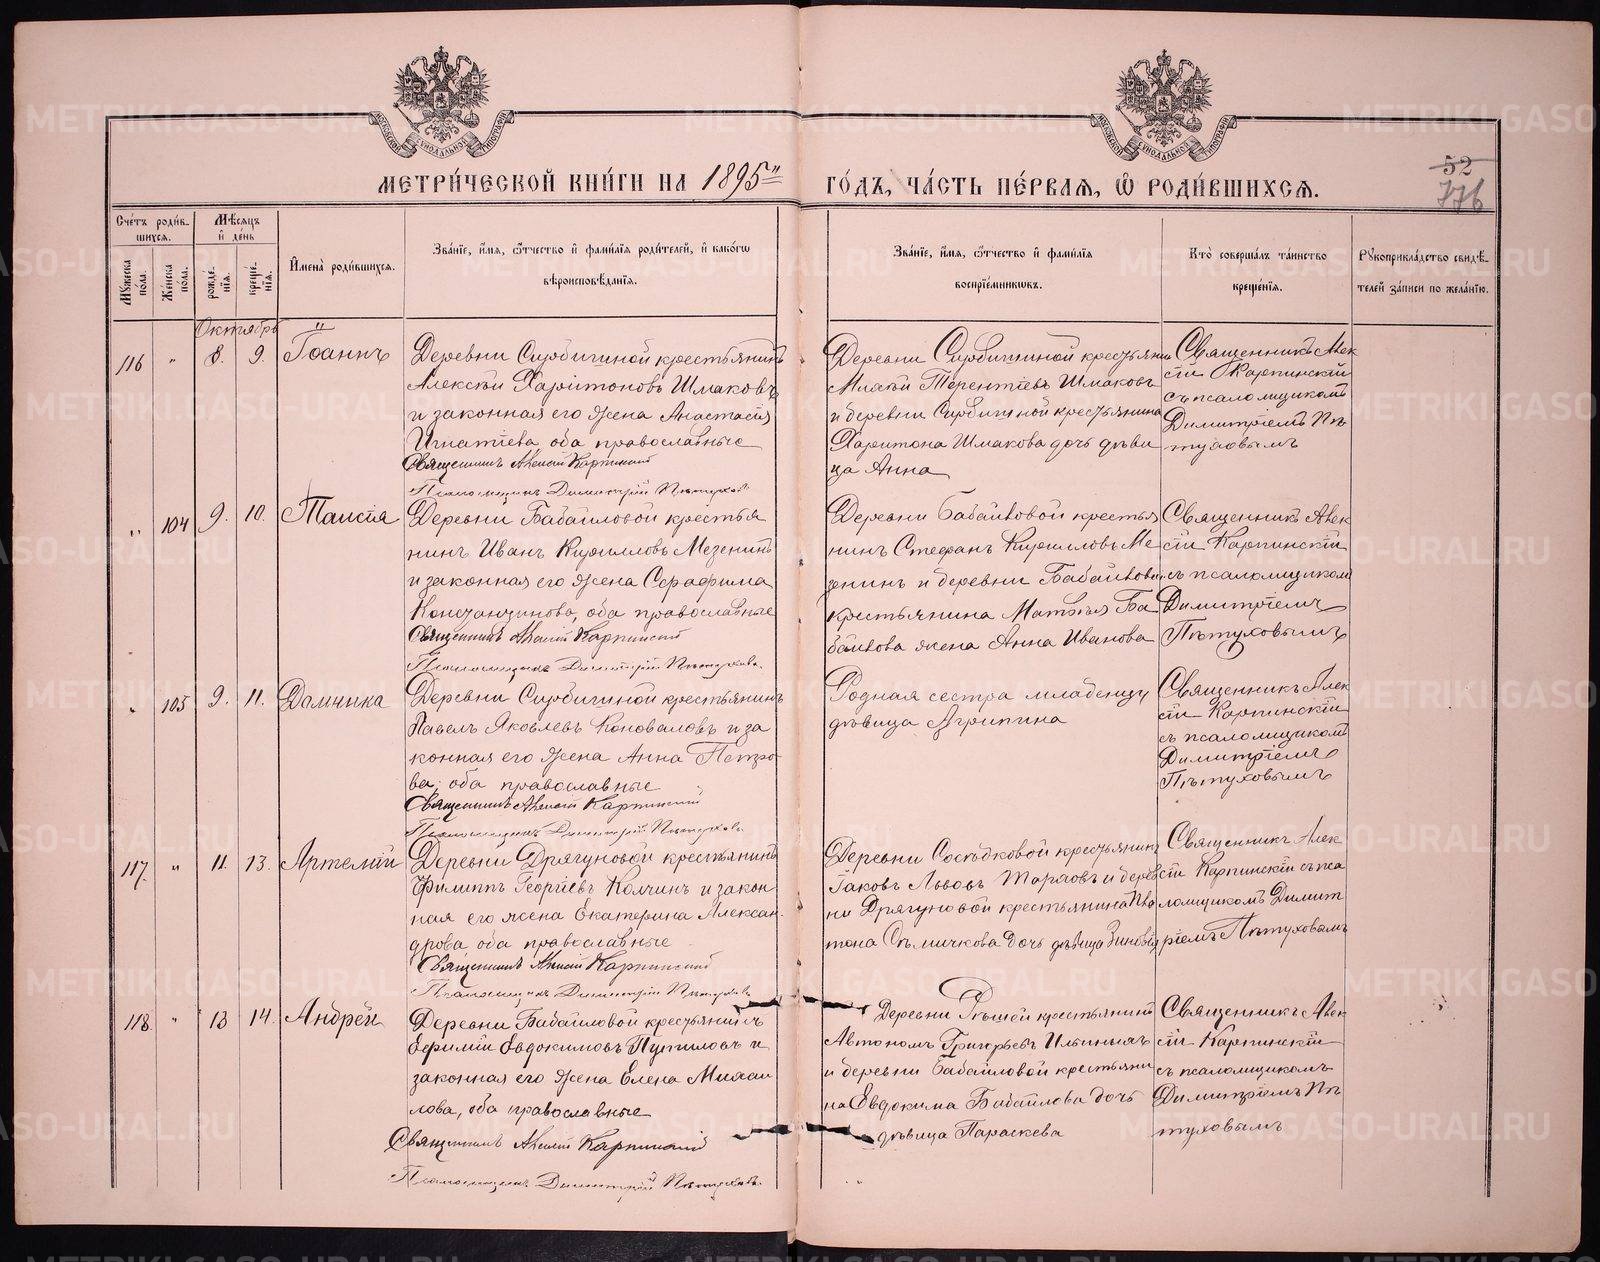 МОСКОВСКОЙ СѴНОДАЛЬНОЙ ТИПОГРАФІИ
МОСКОВСКОЙ СѴНОДАЛЬНОЙ ТИПОГРАФІИ
МЕТРИ́ЧЕСКОЙ КНИ́ГИ НА 1895 ГО́ДЪ, ЧА́СТЬ ПЕ́РВАЯ, Ѽ РОДИ́ВШИХСЯ.
52
776
Сче́тъ роди́в-
шихся.
Мѣ́сяцъ
и҆ де́нь
Мꙋ́жеска по́ла.
Же́нска по́ла.
рожде́-
нїѧ.
креще́-
нїѧ.
И҆мена̀ роди́вшихся.
Зва́нїе, и҆́мѧ, ѻ҆́тчество и҆ фами́лїѧ роди́телей, и҆ како́гѡ
вѣроисповѣ́данїѧ.
Зва́нїе, и҆́мѧ, ѻ҆́тчество и҆ фами́лїѧ
воспрїе́мникѡвъ.
Кто̀ соверша́лъ та́инство
креще́нїѧ.
Рꙋкоприкла́дство свидѣ́-
телей за́писи по жела́нїю.
Октябрь
116 " 8. 9. Іоаннъ
Деревни Сирбишной крестьянинъ
Алексѣй Харитоновъ Шмаковъ
и законная его жена Анастасія
Игнатіева оба православные
Священникъ Алексій Карпинскій
Псаломщикъ Димитрій Пѣтуховъ
Деревни крестьянинъ
Терентіевъ Шмаковъ
и деревни крестьянина
Харитона Шмакова дочь дѣви
ца Анна
Священникъ Алек
сій Карпинскій
съ псаломщикомъ
Димитріемъ Пѣ
туховымъ
" 104 9. 10. Таисія
Деревни Бабаиловой крестья
нинъ Иванъ Кирилловъ Мезенинъ
и законная его жена Серафима
Константинова, оба православные
Священникъ Алексій Карпинскій
Псаломщикъ Димитрій Пѣтуховъ
Деревни крестья
нинъ Стефанъ Кирилловъ Ме
зенинъ и деревни
крестьянина Матвѣя Ба
жена Анна Иванова
Священникъ Алек
сій Карпинскій
съ псаломщикомъ
Димитріемъ
Пѣтуховымъ
" 105 9. 11. Домника
Деревни крестьянинъ
Павелъ Яковлевъ Коноваловъ и за
конная его жена Анна Петро
ва, оба православные
Священникъ Алексій Карпинскій
Псаломщикъ Димитрій Пѣтуховъ
Родная сестра младенцу
дѣвица Агрипина
Священникъ Алек
сій Карпинскій
съ псаломщикомъ
Димитріемъ
Пѣтуховымъ
117. " 11. 13. Артемій
Деревни Дрягуновой крестьянинъ
Филиппъ Георгіевъ Колчинъ и закон
ная его жена Екатерина Алексан
дрова оба православные
Священникъ Алексій Карпинскій
Псаломщикъ Димитрій Пѣтуховъ
Деревни Сосѣдковой крестьянинъ
Іаковъ Львовъ и дерев
ни Дрягуновой крестьянина
дочь дѣвица Зиновія
Священникъ Алек
сій Карпинскій съ пса
ломщикомъ Димит
ріемъ Пѣтуховымъ
118. " 13 14. Андрей
Деревни Бабаиловой крестьянинъ
Евфимій Евдокимовъ и
законная его жена Елена Михаи
лова, оба православные
Священникъ Алексій Карпинскій
Псаломщикъ Димитрій Пѣтуховъ
Деревни крестьянинъ
Автономъ Григорьевъ Ильиныхъ
и деревни Бабаиловой крестьяни
на Евдокима Бабаилова дочь
дѣвица Параскева
Священникъ Алек
сій Карпинскій
съ псаломщикомъ
Димитріемъ Пѣ
туховымъ
METRIKI.GASO-URAL.RU